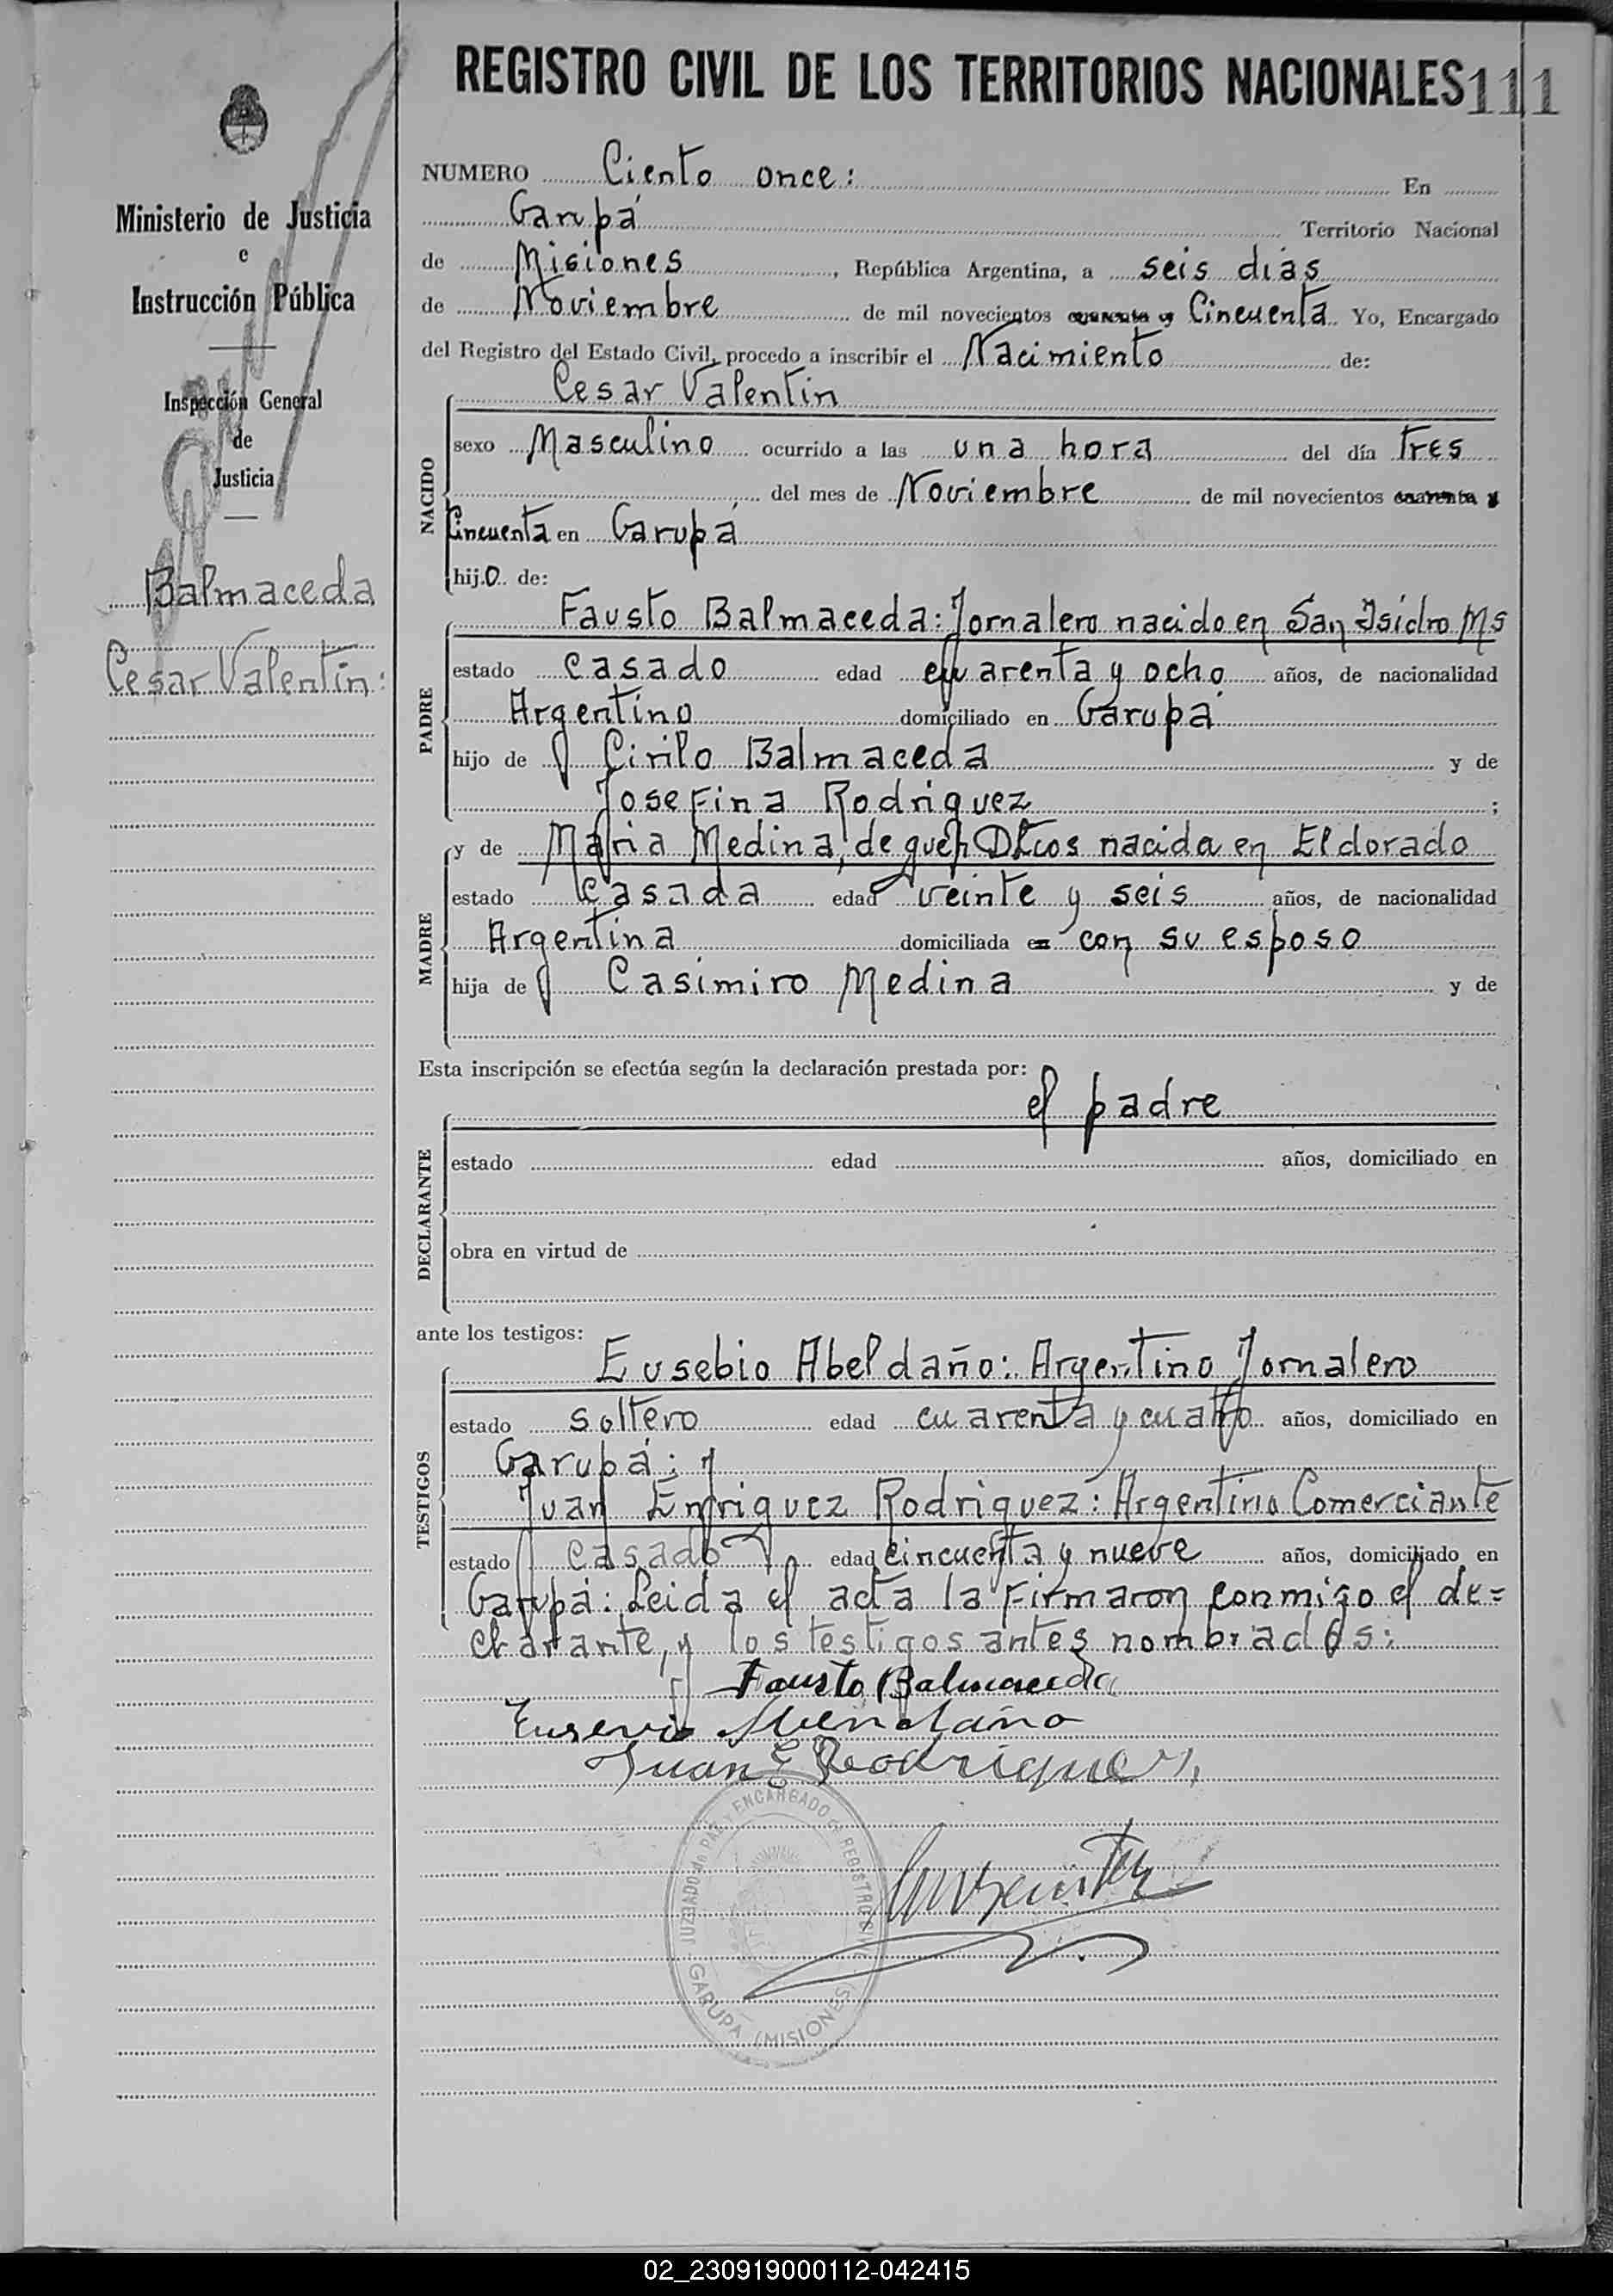 REGISTRO CIVIL DE LOS TERRITORIOS NACIONALES 111
Ministerio de Justicia
e
Instrucción Pública
Inspección General
de
Justicia
Balmaceda
Cesar Valentin:
NUMERO Ciento once: En
Garupá Territorio Nacional
de Misiones, República Argentina, a seis dias
de Noviembre de mil novecientos cuarenta y Cincuenta Yo, Encargado
del Registro del Estado Civil, procedo a inscribir el Nacimiento de:
NACIDO
Cesar Valentin
sexo Masculino ocurrido a las una hora del día Tres
del mes de Noviembre de mil novecientos cuarenta y
Cincuenta en Garupá
hijo de:
PADRE
Fausto Balmaceda: Jornalero nacido en San Isidro Ms
estado casado edad cuarenta y ocho años, de nacionalidad
Argentino domiciliado en Garupá
hijo de Cirilo Balmaceda y de
Josefina Rodriguez;
MADRE
y de Maria Medina, de queh Dtcos nacida en Eldorado
estado casada edad veinte y seis años, de nacionalidad
Argentina domiciliada en con su esposo
hija de Casimiro Medina y de
Esta inscripción se efectúa según la declaración prestada por:
DECLARANTE
el padre
estado edad años, domiciliado en
obra en virtud de
ante los testigos:
TESTIGOS
Eusebio Abeldaño: Argentino Jornalero
estado soltero edad cuarenta y cuatro años, domiciliado en
Garupá: y
Juan Enriquez Rodriguez: Argentino Comerciante
estado casado edad cincuenta y nueve años, domiciliado en
Garupá: Leida el acta la firmaron conmigo el de=
clarante, y los testigos antes nombrados:
Fausto Balmaceda
Eusevio Abendaño
Juan E Rodriguez
JUZGADO de PAZ y ENCARGADO del REGISTRO CIVIL
GARUPA (MISIONES)
02_230919000112-042415